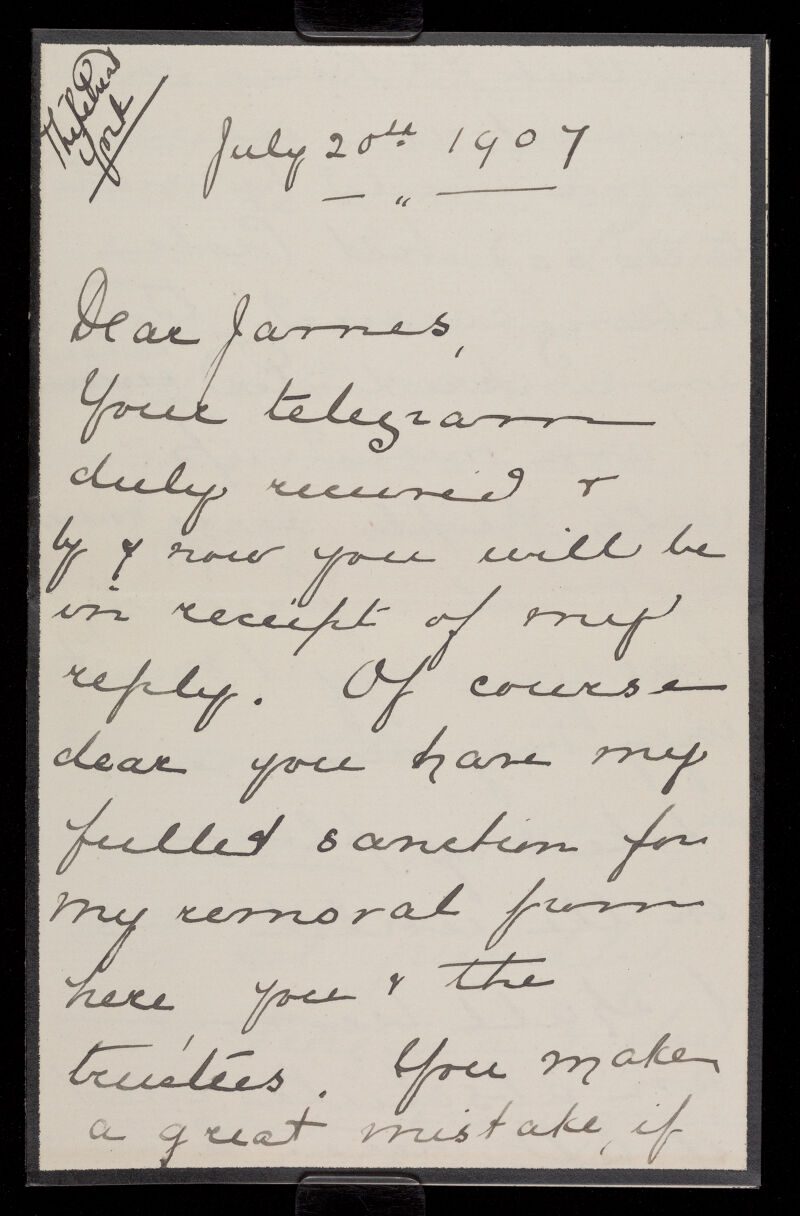 The Retreat
York
July 20th 1907
Dear James,
Your telegram
duly received &
by & now you will be
in receipt of my
reply. Of course
dear you have my
fullest sanction for
my removal from
here you & the
trustees. You make
a great mistake, if